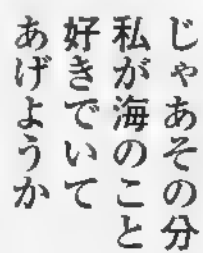 じゃあその分
私が海のこと
好きでいて
あげようか